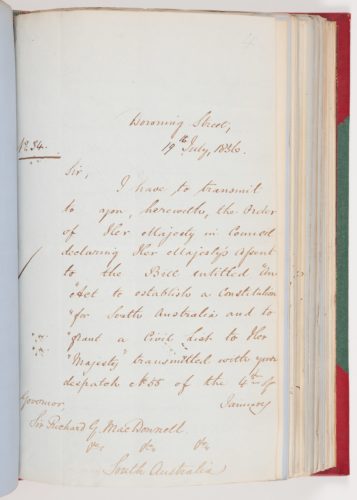 Downing Street,
19th July, 1856.
No. 34.
Sir,
I have to transmit
to you, herewith, the Order
of Her Majesty in Council
declaring Her Majesty's Assent
to the Bill entitled "An
"Act to establish a Constitution
"for South Australia and to
"grant a Civil List to Her
"Majesty" transmitted with your
despatch No 55 of the 4th of
January
Governor,
Sir Richard G. MacDonnell.
&c &c &c
South Australia